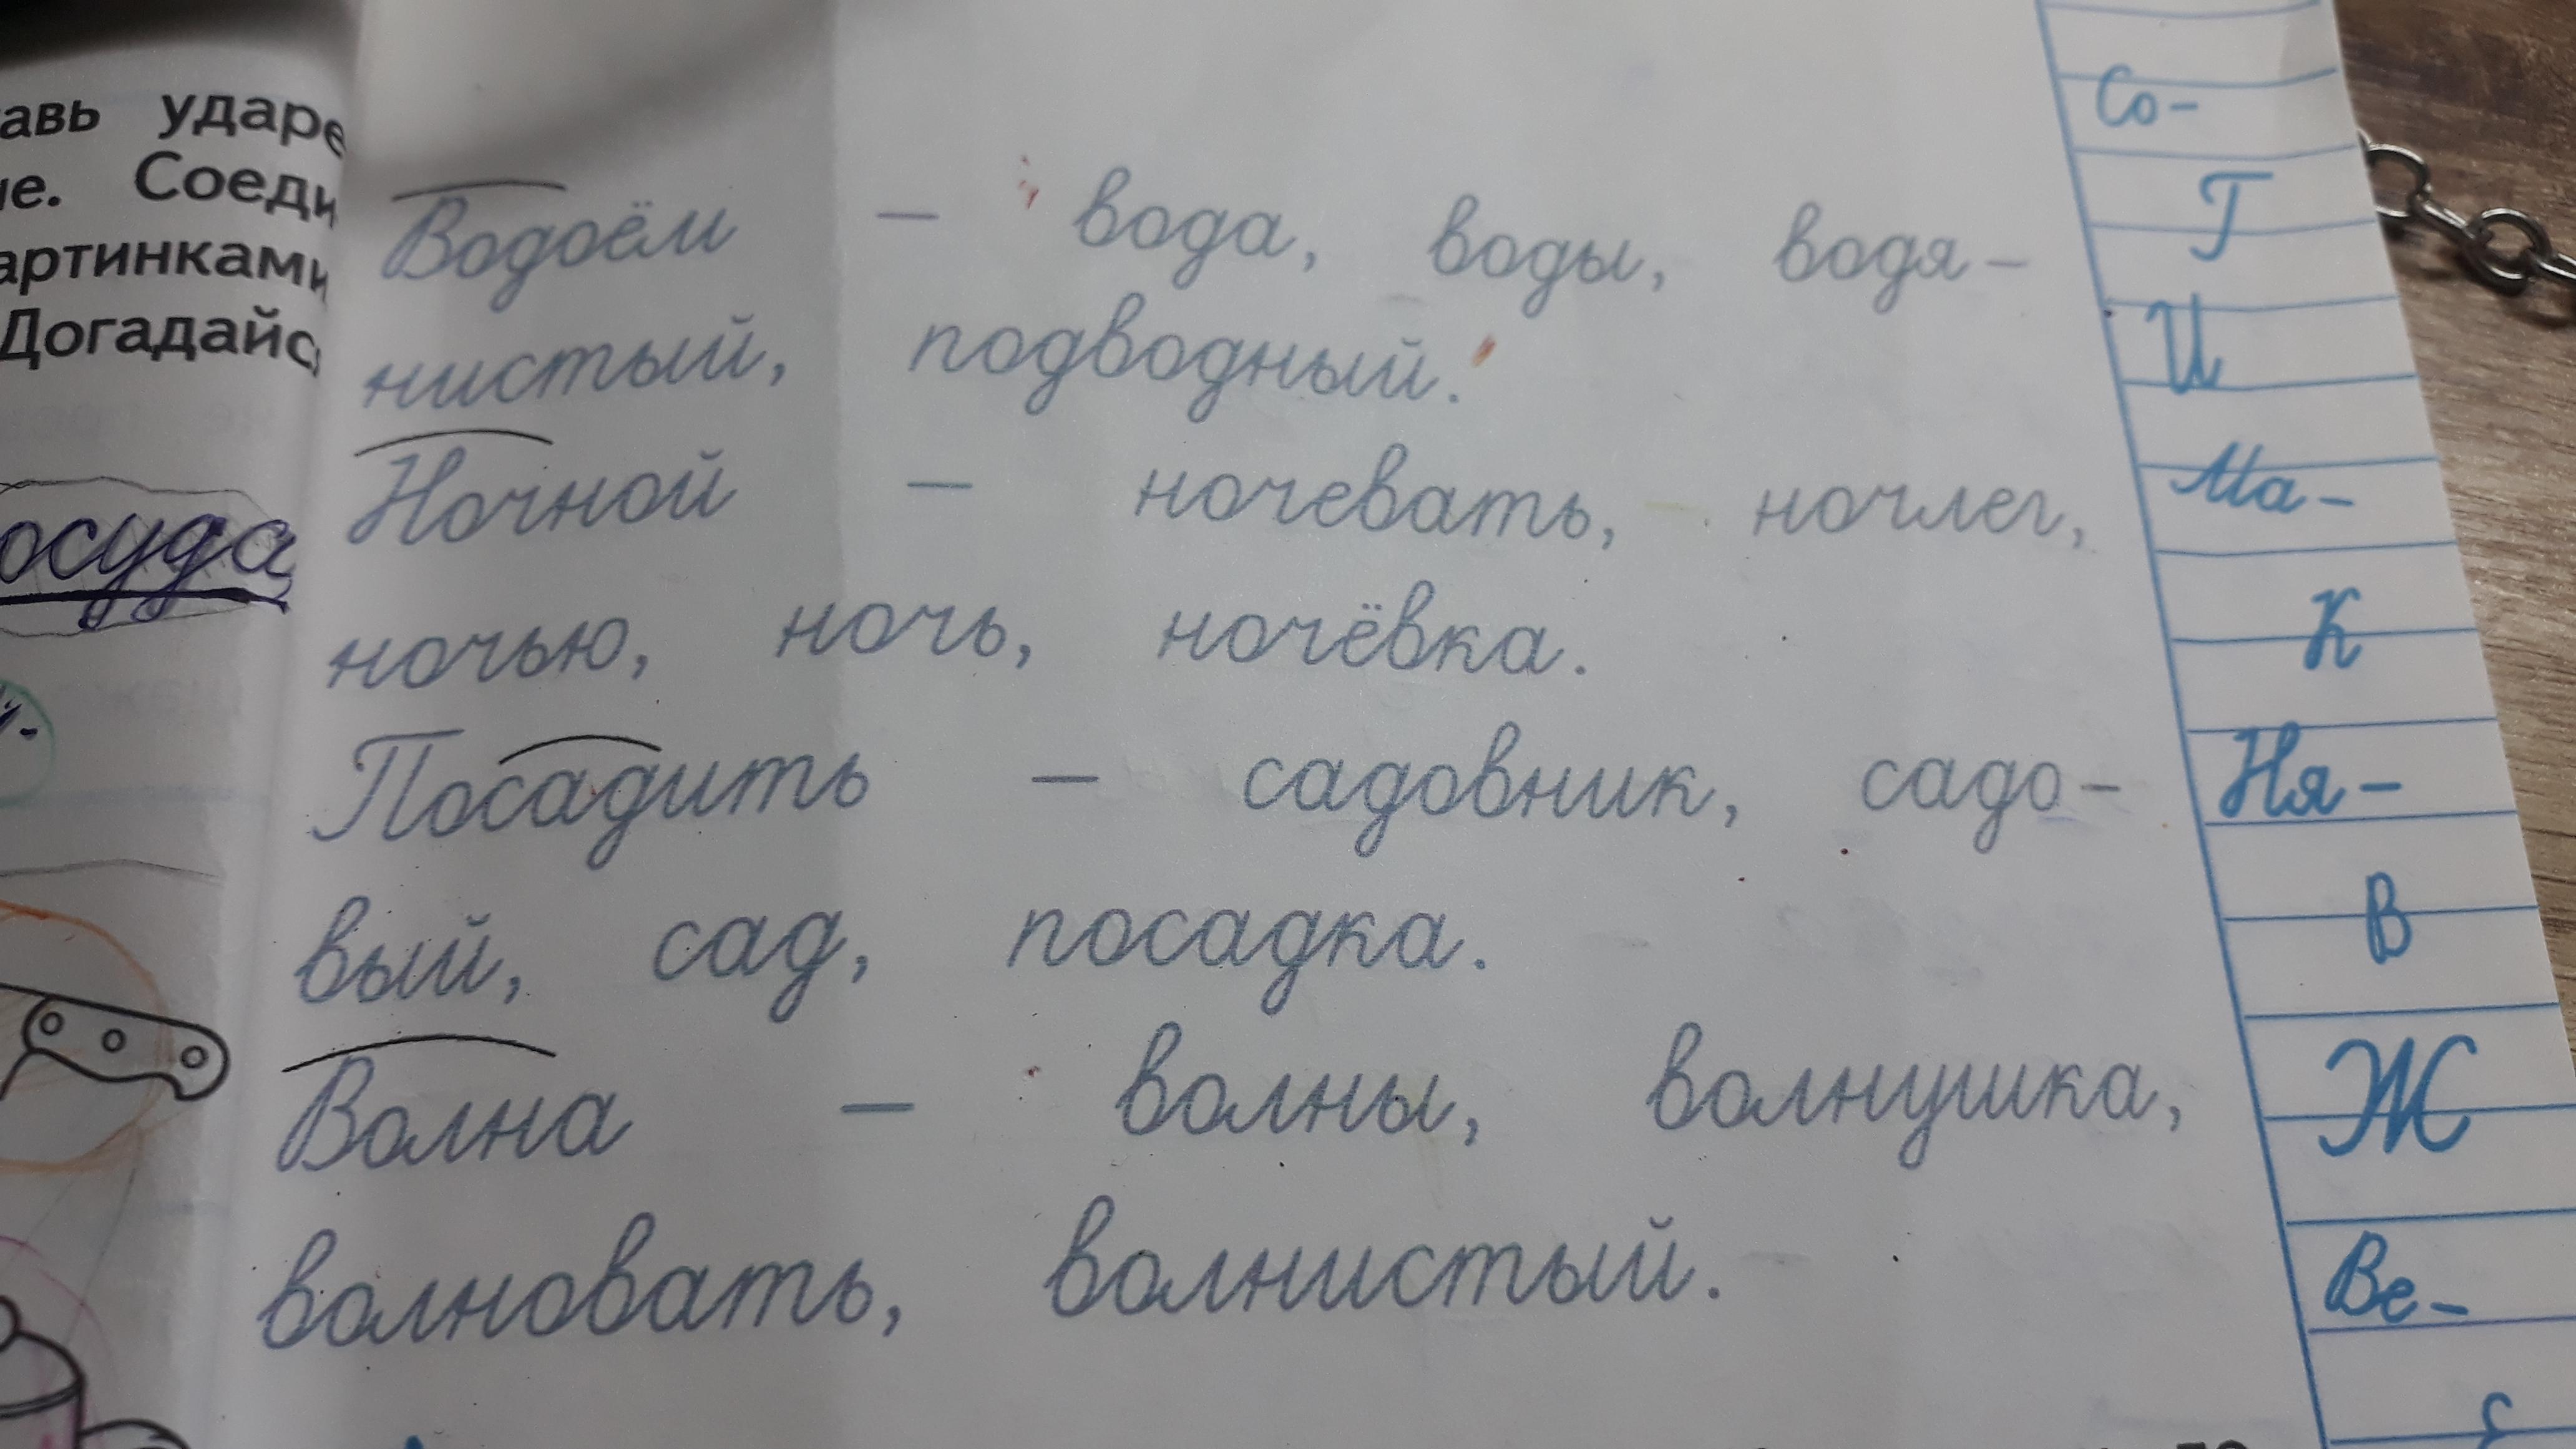 ударе
Соеди
артинками
Догадайс
осуда
Водоём – вода, воды, водя-
нистый, подводный.
Ночной – ночевать, ночлег,
ночью, ночь, ночёвка.
Посадить – садовник, садо-
вый, сад, посадка.
Волна – волны, волнушка,
волновать, волнистый.
Со-
Т
И
Ма-
К
Ня-
В
Ж
Ве-